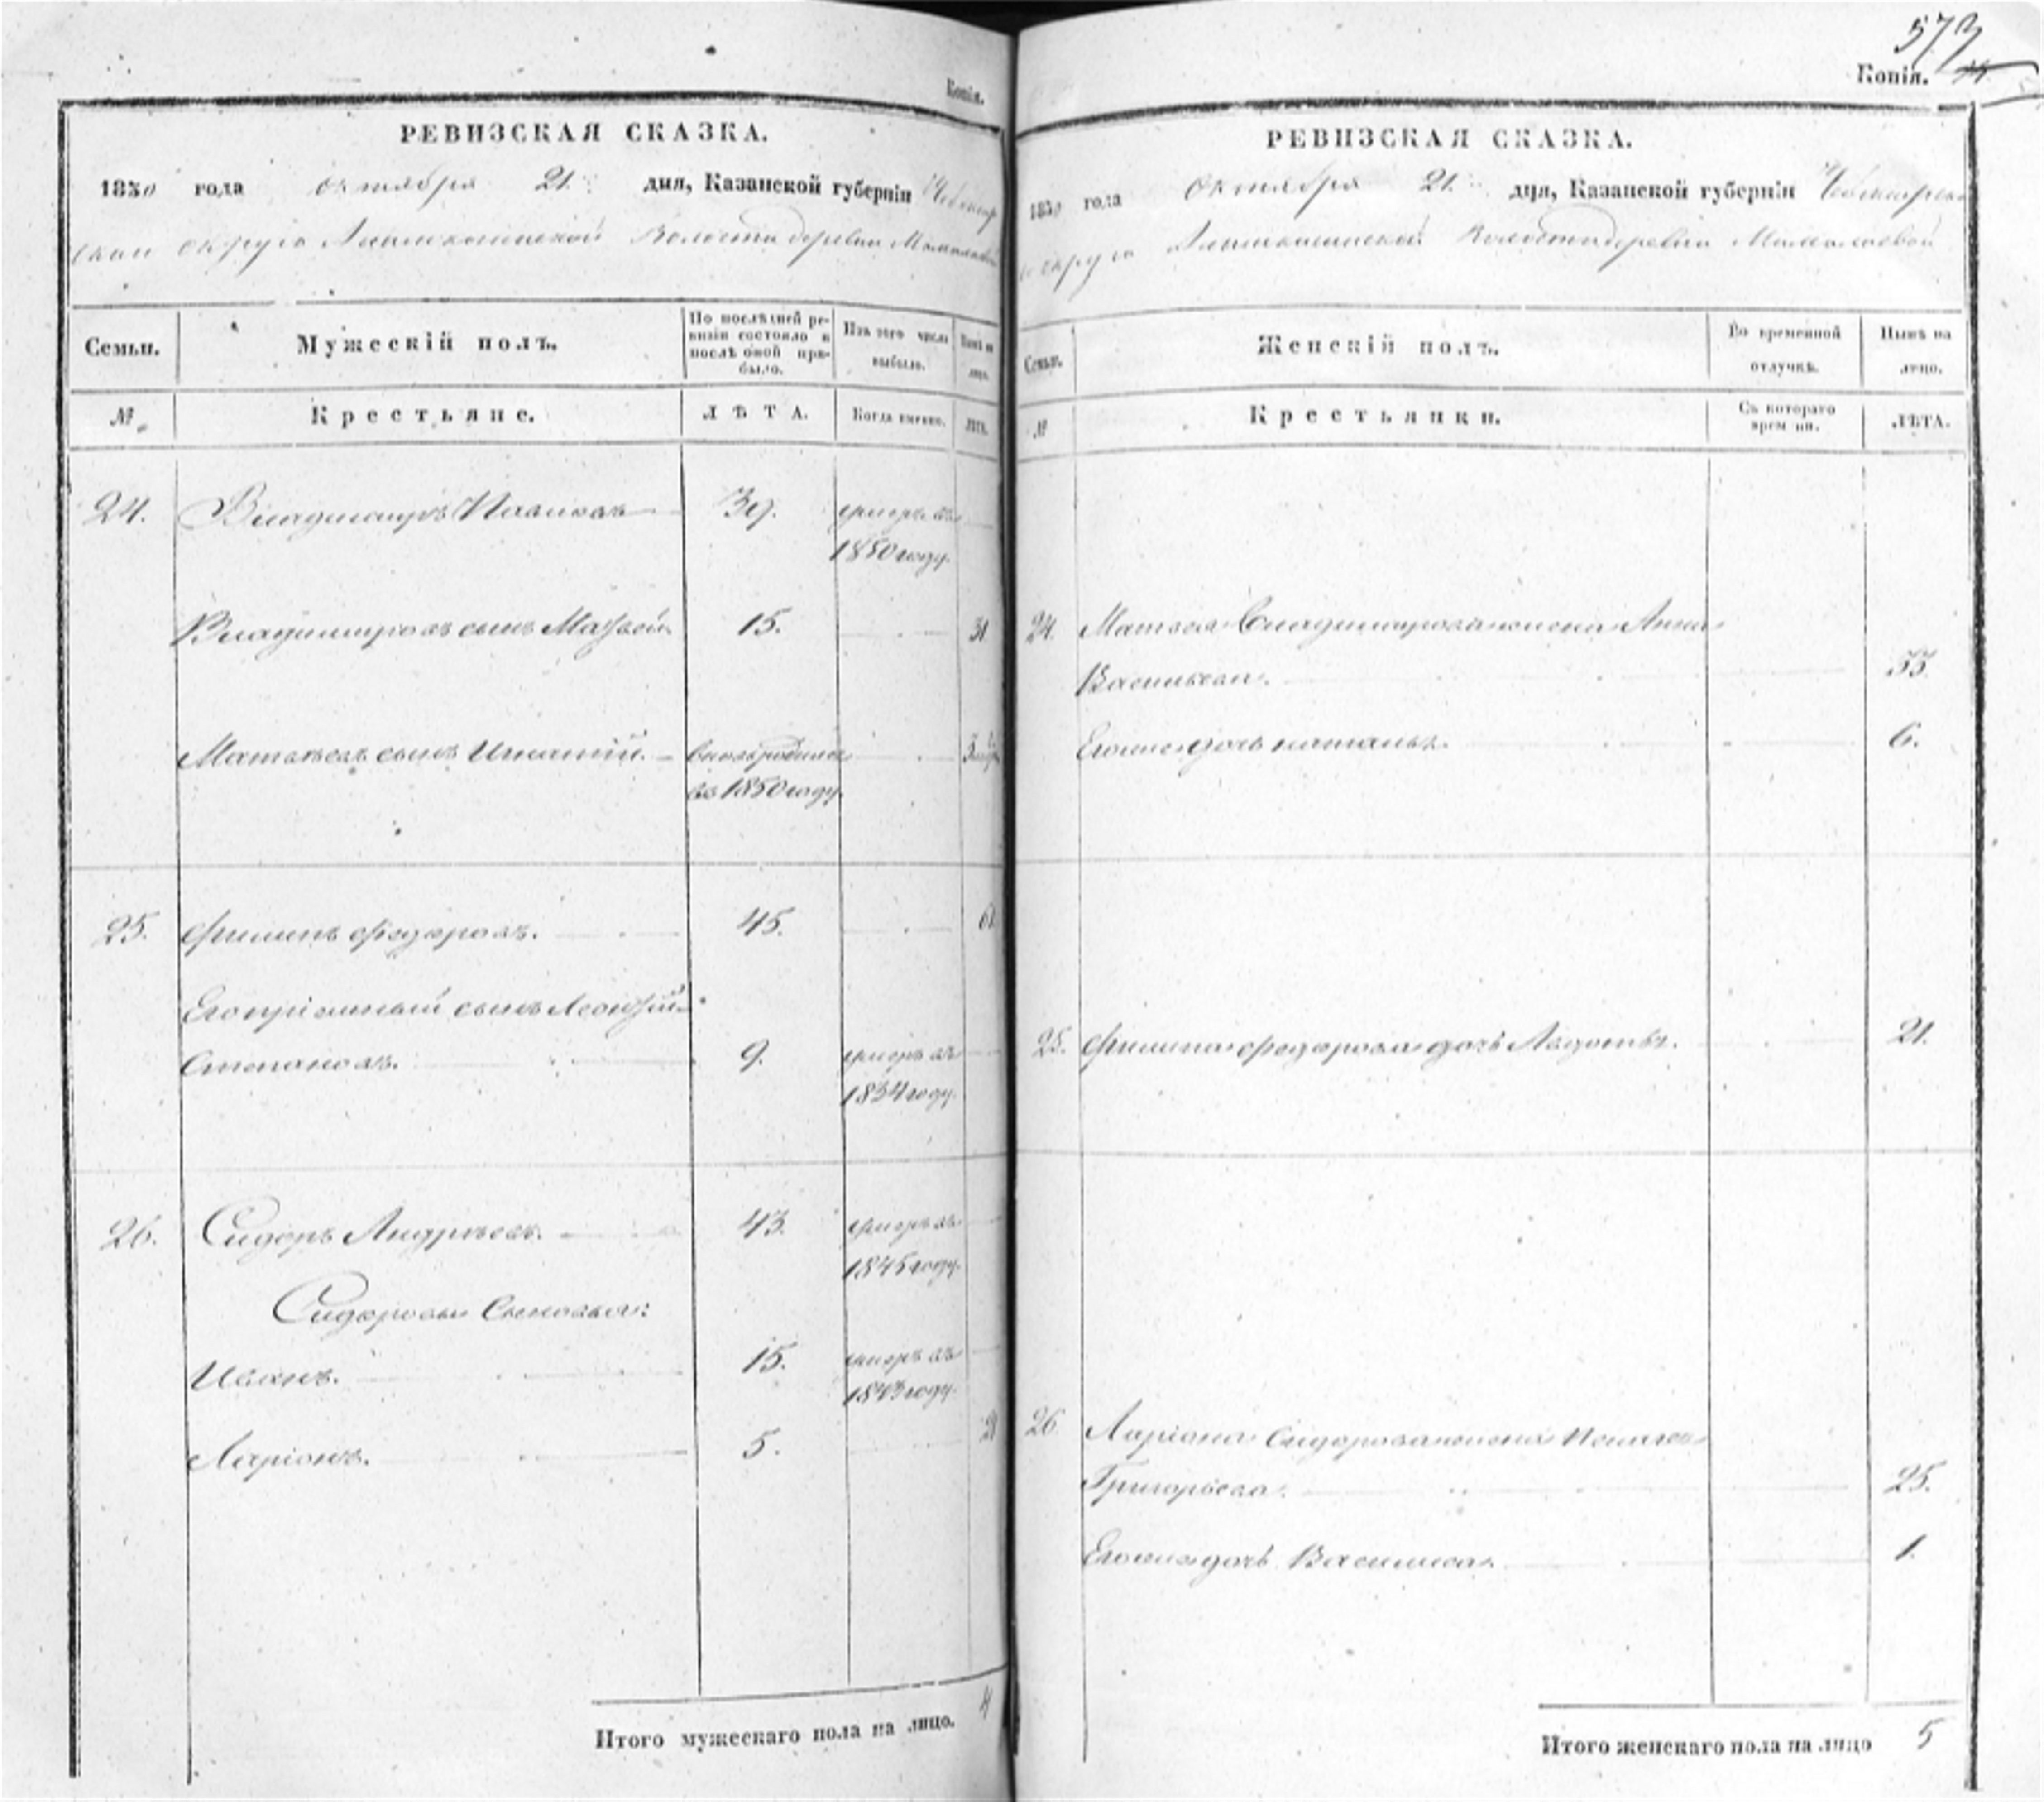 Копія.
РЕВИЗСКАЯ СКАЗКА.
1850 года октября 21 дня, Казанской губерніи Чебоксар
скаго округа волости деревни
Семьи.
Мужескій полъ.
По послѣдней ре-
визіи состояло и
послѣ оной при-
было.
Изъ того числа
выбыло.
Нынѣ на
лицо.
№
Крестьяне.
ЛѢТА.
Когда именно.
ЛѢТА.
24. Владимиръ Павловъ 39. умеръ въ
1850 году.
Владимировъ сынъ Матвей 15. 31
Матвѣевъ сынъ Игнатій. вновь родился 3
въ 1850 году.
25. Филипъ Федоровъ. 45. 61
Его пріемный сынъ Леонтій
Степановъ. 9. умеръ въ
1834 году.
26. Сидоръ Андреевъ. 43. умеръ въ
1845 году.
Сидоровы сыновья:
Иванъ. 15. умеръ въ
1843 году.
Ларіонъ. 5. 21
Итого мужескаго пола на лицо. 4
573
Копія.
РЕВИЗСКАЯ СКАЗКА.
1850 года октября 21 дня, Казанской губерніи Чебоксарска
го округа волости деревни
Семьи.
Женскій полъ.
Во временной
отлучкѣ.
Нынѣ на
лицо.
№
Крестьянки.
Съ котораго
времени.
ЛѢТА.
24. Матвея Владимирова жена Анна
Васильева. 33
Его же дочь Наталья. 6.
25. Филипа Федорова дочь Авдотья. 21.
26 Ларіона Сидорова жена Пелагея
Григорьева. 25.
Его же дочь Василиса. 1.
Итого женскаго пола на лицо 5